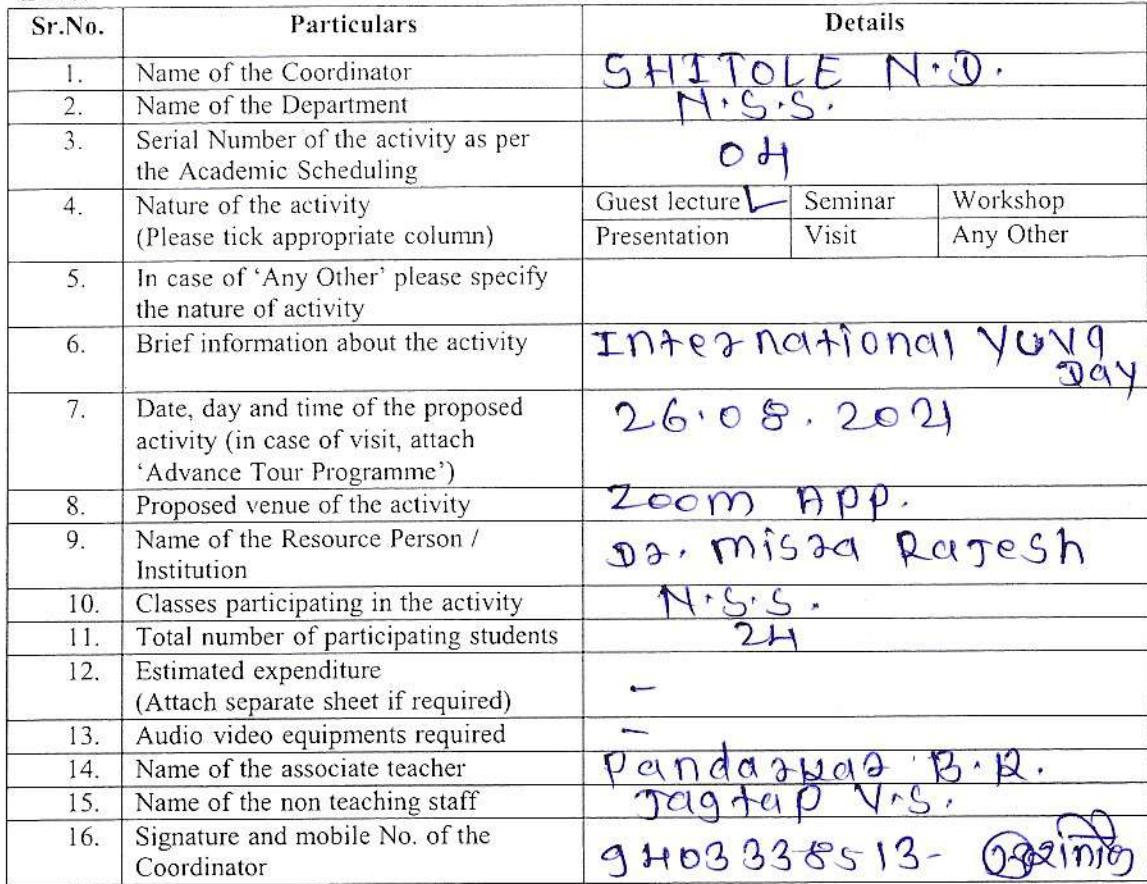 Sr.No. Particulars Details
1. Name of the Coordinator SHITOLE N.D.
2. Name of the Department N.S.S.
3. Serial Number of the activity as per
the Academic Scheduling 04
4. Nature of the activity Guest lecture Seminar Workshop
(Please tick appropriate column) Presentation Visit Any Other
5. In case of ‘Any Other’ please specify
the nature of activity
6. Brief information about the activity International Yuva
Day
7. Date, day and time of the proposed 26.08.2021
activity (in case of visit, attach
‘Advance Tour Programme’)
8. Proposed venue of the activity Zoom App.
9. Name of the Resource Person / Dr. Misra Rajesh
Institution
10. Classes participating in the activity N.S.S.
11. Total number of participating students 24
12. Estimated expenditure -
(Attach separate sheet if required)
13. Audio video equipments required -
14. Name of the associate teacher Pandarkar B.R.
15. Name of the non teaching staff Jagtap V.S.
16. Signature and mobile No. of the
Coordinator 9403338513-